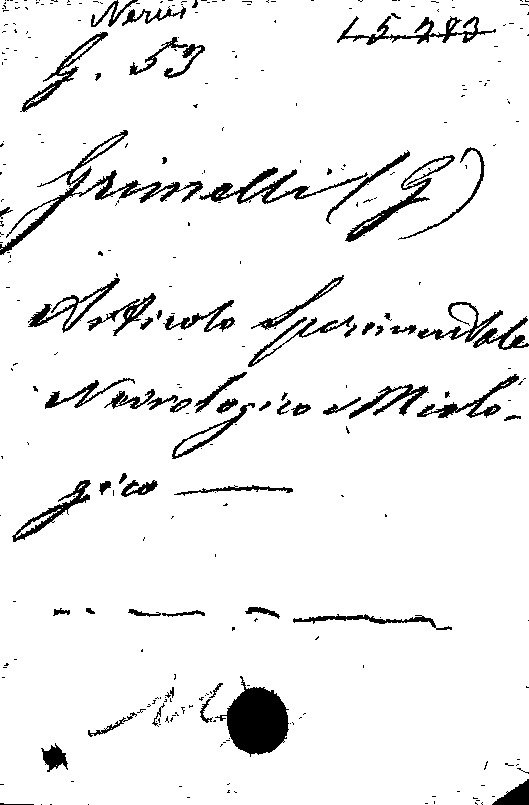 Nervi
L 5 283
G. 53
Grimelli (G)
Articolo Sperimentale
Nevrologico e Miolo-
gico